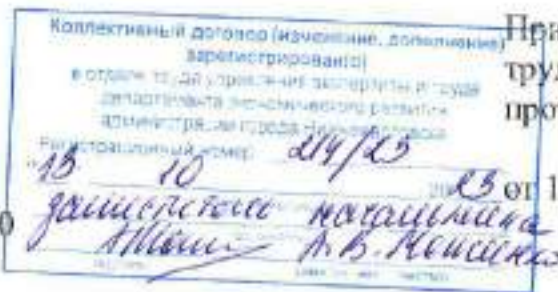 Коллективный договор (изменение, дополнение)
зарегистрирован(о)
в отделе труда управления экспертизы и труда
департамента экономического развития
администрации города Нижневартовска
Регистрационный номер 214/23
"13 10 2023
заместитель начальника
А.В.
При
тру
про
от 1
0